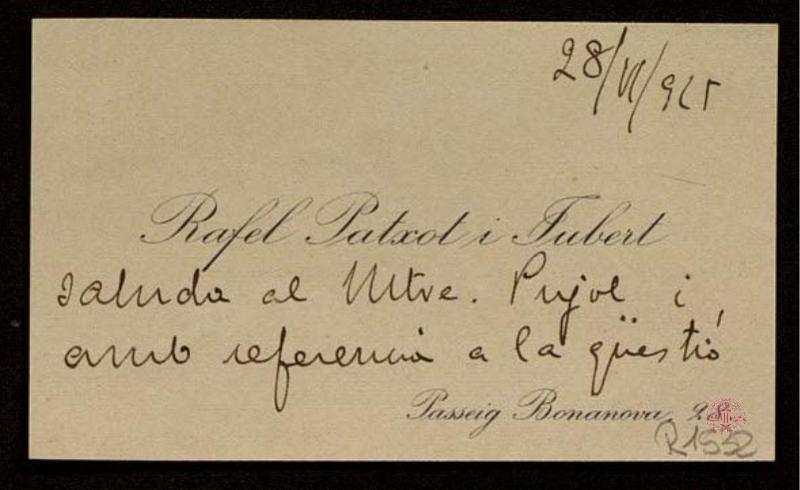 28/VI/925
Rafel Patxot i Jubert
saluda al Mtre. Pujol i
amb referencia a la qüestió
Passeig Bonanova, 28
R1552